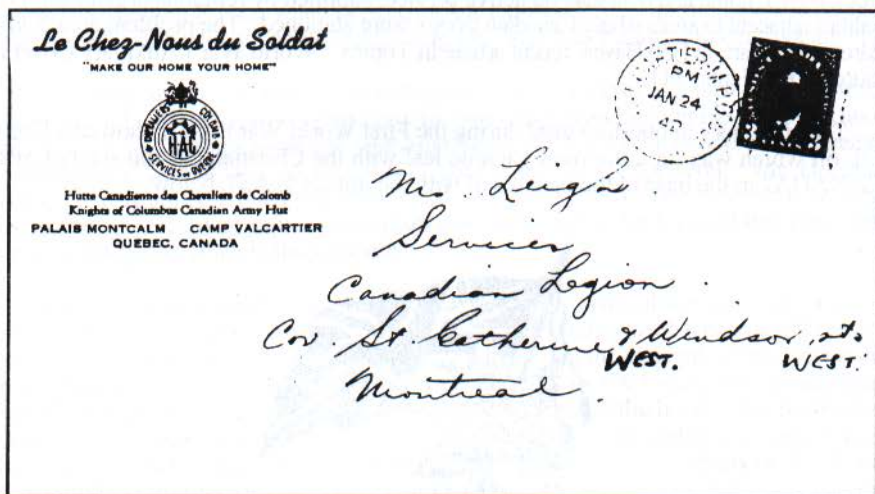 Le Chez-Nous du Soldat
"MAKE OUR HOME YOUR HOME"
CHEVALIERS DE COLOMB
HAC
SERVICES DE GUERRE
Hutte Canadienne des Chevaliers de Colomb
Knights of Columbus Canadian Army Hut
PALAIS MONTCALM CAMP VALCARTIER
QUEBEC, CANADA
PM
JAN 24
Mr. Leigh.
Services
Canadian Legion.
Cor St. Catherine & Windsor sts
WEST. WEST.
Montreal.